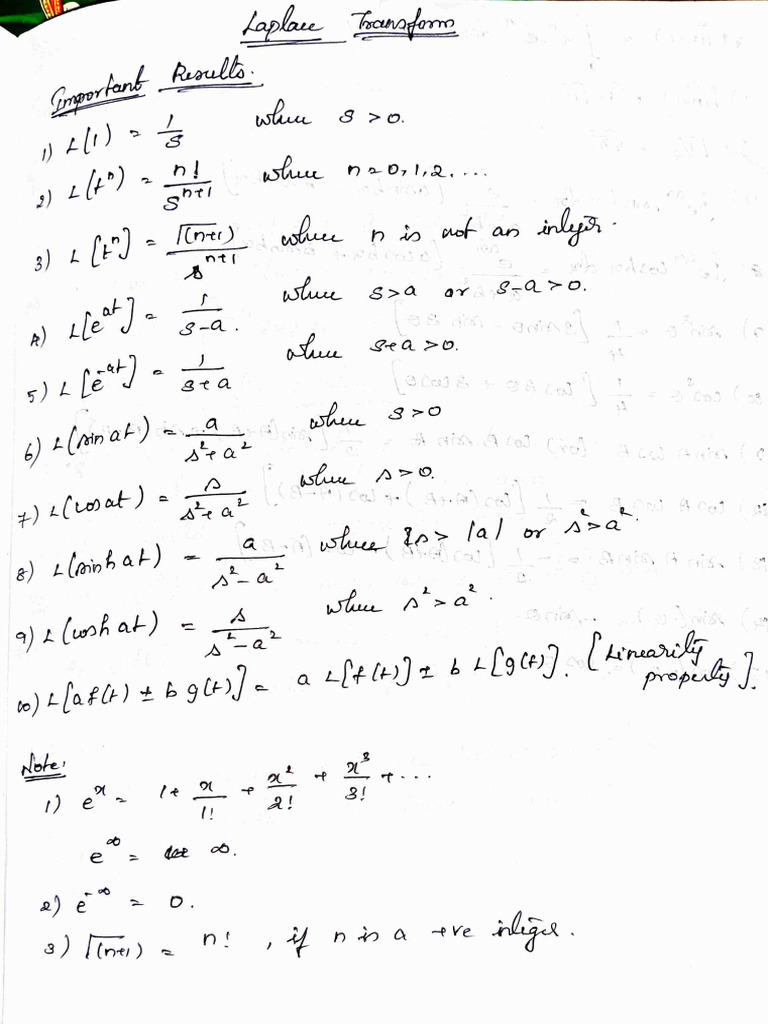 Laplace Transform
Important Results.
1) L(1) = 1/s when s > 0.
2) L(tⁿ) = n!/sⁿ⁺¹ when n = 0, 1, 2, ...
3) L[tⁿ] = Γ(n+1)/sⁿ⁺¹ where n is not an integer.
4) L[eᵃᵗ] = 1/(s-a). where s>a or s-a>0.
5) L[e⁻ᵃᵗ] = 1/(s+a) when s+a>0.
6) L(sin at) = a/(s²+a²) when s>0
7) L(cos at) = s/(s²+a²) when s>0.
8) L(sinh at) = a/(s²-a²) where s > |a| or s²>a².
9) L(cosh at) = s/(s²-a²) when s²>a².
10) L[a f(t) ± b g(t)] = a L[f(t)] ± b L[g(t)]. [Linearity property].
Note:
1) eˣ = 1 + x/1! + x²/2! + x³/3! + ...
e^∞ = ∞.
2) e^-∞ = 0.
3) Γ(n+1) = n!, if n is a +ve integer.